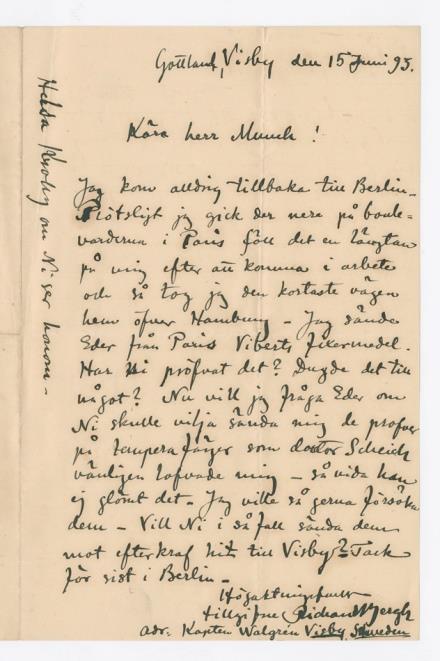 Gottland, Visby den 15 Juni 93.
Kära herr Munch!
Jag kom alldrig tillbaka till Berlin.
Plötsligt jag gick der nere på boule-
varderna i Paris föll det en längtan
på mig efter att komma i arbete
och så tog jag den kortaste vägen
hem öfver Hamburg – Jag sände
Eder från Paris Viberts fixermedel.
Har ni pröfvat det? Dugde det till
något? Nu vill jag fråga Eder om
Ni skulle vilja sända mig de profver
på tempera färger som doctor Scheich
vänligen lofvade mig – så vida han
ej glömt det – Jag ville så gerna försöka
dem – Vill Ni i så fall sända dem
mot efterkraf hit till Visby? Tack
för sist i Berlin –
Högaktningsfullt
tillgifne Richard Bergh
adr. Kapten Walgren Visby Sweden
Helsa Krohg om Ni ser honom –